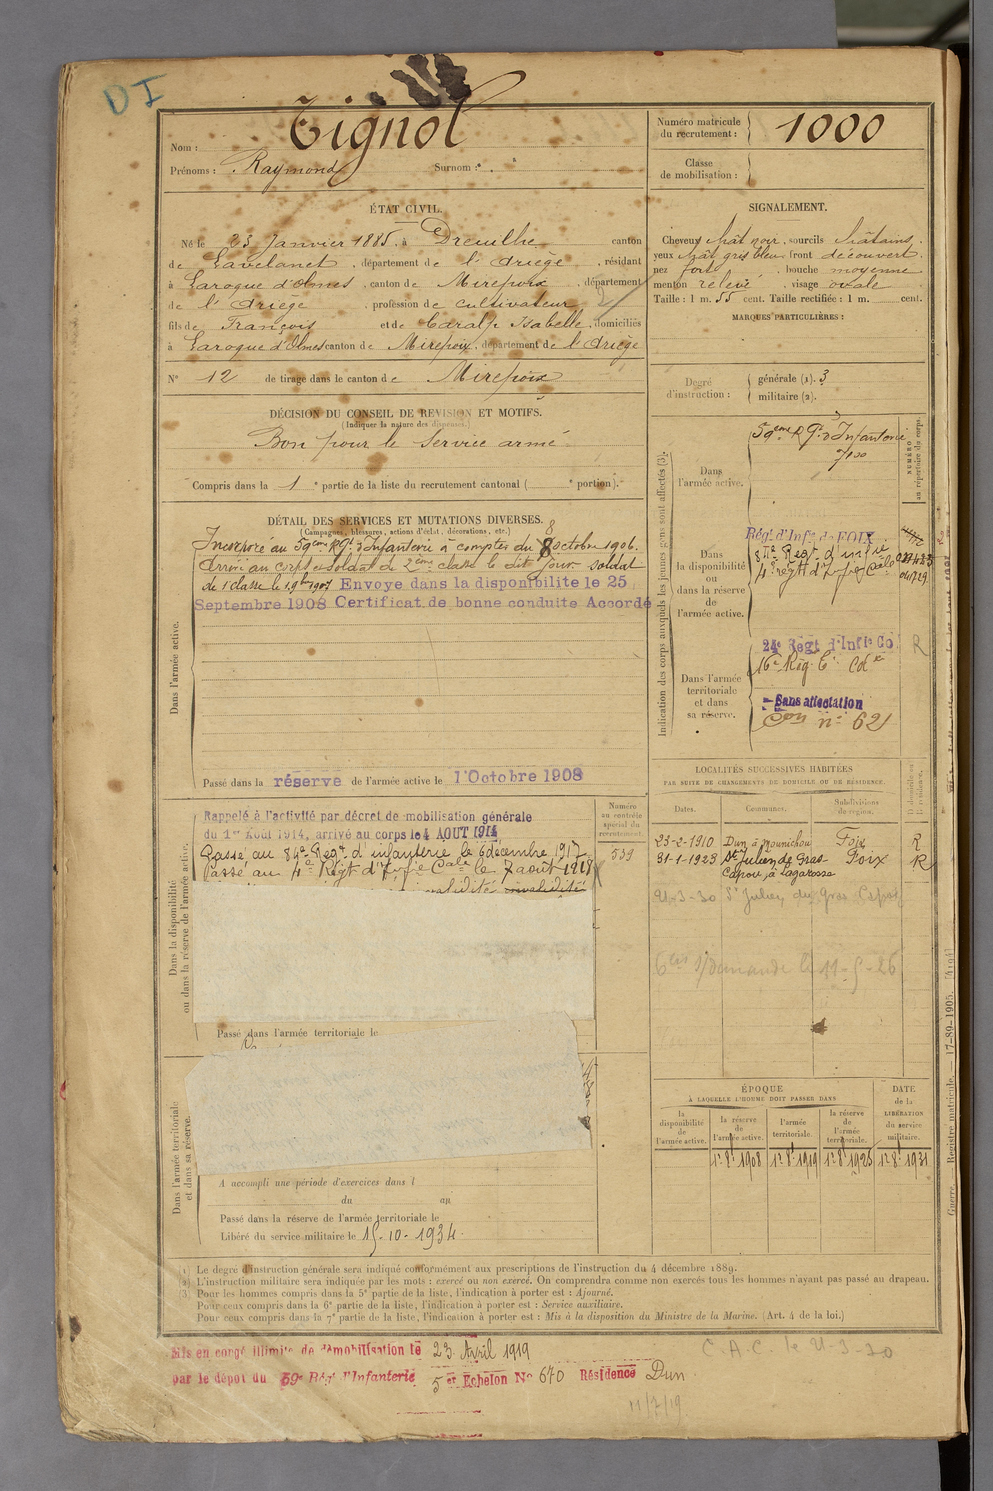 DI
Nom : Tignol
Prénoms : Raymond Surnom :
Numéro matricule du recrutement : 1000
Classe de mobilisation :
ÉTAT CIVIL.
Né le 23 Janvier 1885, à Dreuilhe canton
de Lavelanet, département de l'Ariège, résidant
à Laroque d'Olmes, canton de Mirepoix, département
de l'Ariège, profession de cultivateur
fils de François et de Caralp Isabelle, domiciliés
à Laroque d'Olmes canton de Mirepoix, département de l'Ariège
N° 12 de tirage dans le canton de Mirepoix
SIGNALEMENT.
Cheveux chât noir, sourcils châtains
yeux chât gris bleu front découvert
nez fort, bouche moyenne
menton relevé, visage ovale
Taille : 1 m. 55 cent. Taille rectifiée : 1 m. cent.
MARQUES PARTICULIÈRES :
Degré d'instruction : générale (1). 3
militaire (2).
DÉCISION DU CONSEIL DE REVISION ET MOTIFS.
(Indiquer la nature des dispenses.)
Bon pour le service armé
Compris dans la 1e partie de la liste du recrutement cantonal ( e portion).
DÉTAIL DES SERVICES ET MUTATIONS DIVERSES.
(Campagnes, blessures, actions d'éclat, décorations, etc.)
Dans l'armée active.
Incorporé au 59ème Rgt d'Infanterie à compter du 8 octobre 1906.
Arrivé au corps et soldat de 2ème classe le dit jour. soldat
de 1 classe le 19bre 1907 Envoye dans la disponibilite le 25
Septembre 1908 Certificat de bonne conduite Accordé
Passé dans la réserve de l'armée active le 1'Octobre 1908
Indication des corps auxquels les jeunes gens sont affectés (3).
NUMÉRO au répertoire du corps.
Dans l'armée active.
59ème Rgt d'Infanterie
Dans la disponibilité ou dans la réserve de l'armée active.
Régt d'Infie de FOIX
4e régt d'Infie Cale
Dans l'armée territoriale et dans sa réserve.
24e Régt d'Infie Co
R
16e Rég
Sans affectation
n° 621
LOCALITÉS SUCCESSIVES HABITÉES
PAR SUITE DE CHANGEMENTS DE DOMICILE OU DE RÉSIDENCE.
Dates. Communes. Subdivisions de région. D domicile ou R résidence.
23-2-1910 Dun à Foix R
31-1-1923 St Julien de Gras- Foix R
Capou, à Lagarosse
21-3-30 St Julien de Gras Capou
11-5-26
Dans la disponibilité ou dans la réserve de l'armée active.
Numéro au contrôle spécial du recrutement.
539
Rappelé à l'activité par décret de mobilisation générale
du 1er Août 1914, arrivé au corps le 4 AOUT 1914
Passé au 84e Regt d'infanterie le 6 décembre 1917
Passé au 4e Régt d'Infie Cale le 7 août 1918
invalidité
Passé dans l'armée territoriale le
Dans l'armée territoriale et dans sa réserve.
A accompli une période d'exercices dans l
du au
Passé dans la réserve de l'armée territoriale le
Libéré du service militaire le 15-10-1934
ÉPOQUE
À LAQUELLE L'HOMME DOIT PASSER DANS
DATE de la LIBÉRATION du service militaire.
la disponibilité de l'armée active.
la réserve de l'armée active.
l'armée territoriale.
la réserve de l'armée territoriale.
1r 8bre 1908 1r 8bre 1919 1r 8bre 1925 1r 8bre 1931
(1) Le degré d'instruction générale sera indiqué conformément aux prescriptions de l'instruction du 4 décembre 1889.
(2) L'instruction militaire sera indiquée par les mots : exercé ou non exercé. On comprendra comme non exercés tous les hommes n'ayant pas passé au drapeau.
(3) Pour les hommes compris dans la 5e partie de la liste, l'indication à porter est : Ajourné.
Pour ceux compris dans la 6e partie de la liste, l'indication à porter est : Service auxiliaire.
Pour ceux compris dans la 7e partie de la liste, l'indication à porter est : Mis à la disposition du Ministre de la Marine. (Art. 4 de la loi.)
Guerre. Registre matricule. — 17-89-1905. [4194]
Mis en congé illimité de démobilisation le 23 Avril 1919
par le dépôt du 59e Rég. d'Infanterie 5er Echelon No 670 Résidence Dun
C.A.C. le 21-3-30
11/7/19